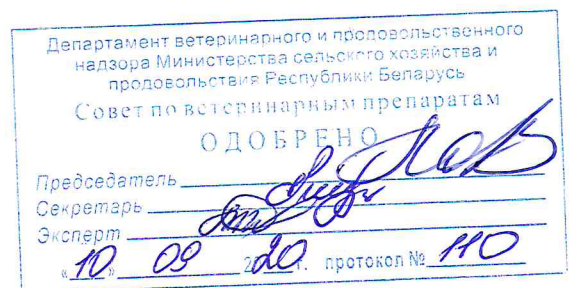 Департамент ветеринарного и продовольственного
надзора Министерства сельского хозяйства и
продовольствия Республики Беларусь
Совет по ветеринарным препаратам
ОДОБРЕНО
Председатель
Секретарь
Эксперт
«10» 09 2020 г. протокол № 110